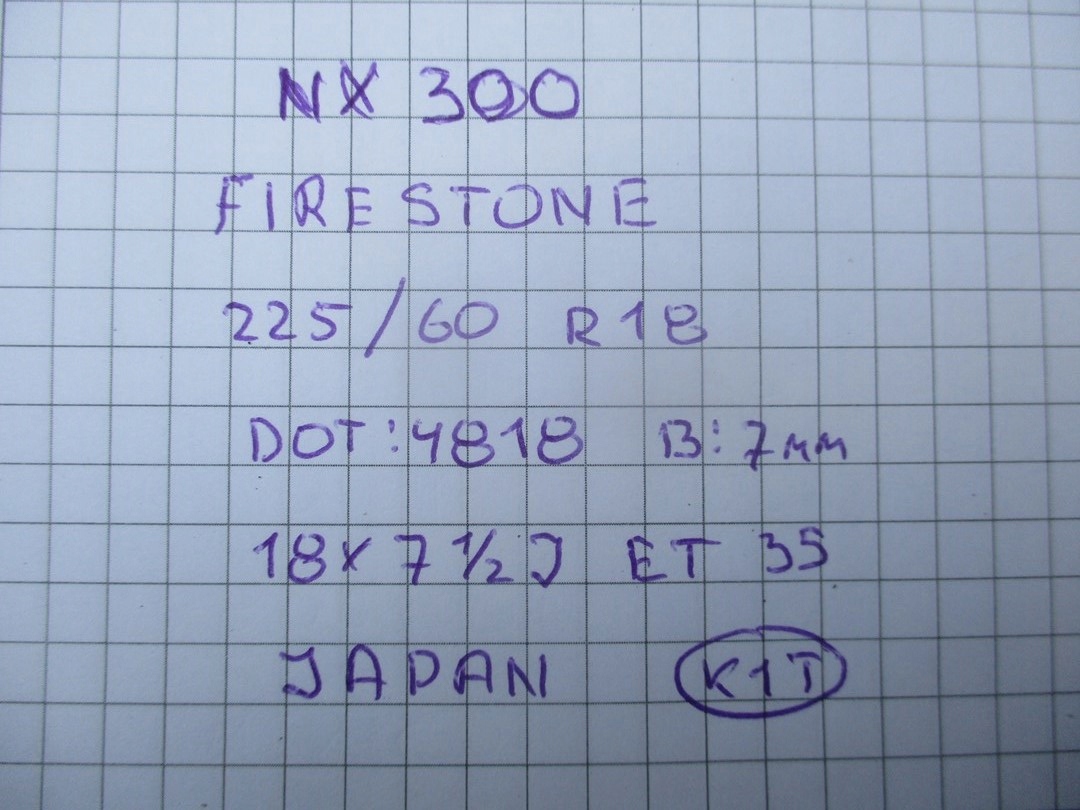 NX 300
FIRESTONE
225/60 R18
DOT:4818 B: 7mm
18x7 1/2 J ET 35
JAPAN K1T